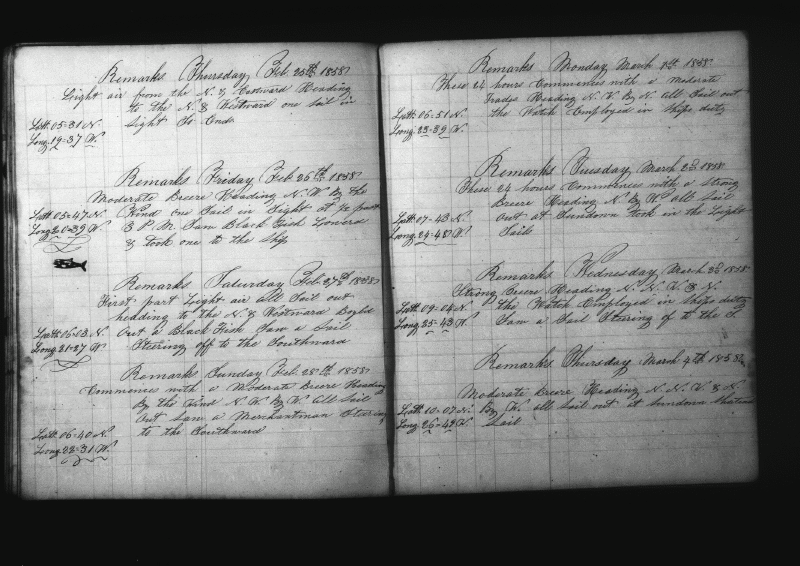 Remarks Thursday Feb. 25th 1858
Light air from the N. & Eastward Heading
to the N. & Westward one Sail in
Latt. 05-31 N. Sight So Ends
Long. 19-37 W.
Remarks Friday Feb 26th 1858
Moderate Breeze Heading N. W. By the
Latt. 05-47 N. Wind one Sail in Sight at
Long. 20-39 W. 3 P. M. Saw Black Fish Lowerd
& took one to the Ship
Remarks Saturday Feb. 27th 1858
First part Light air all Sail out
hedding to the N. & Westward Boyled
Latt. 06-13 N. Out a Black Fish Saw a Sail
Long. 21-27 W. Steering off to the Southward
Remarks Sunday Feb. 28th 1858
Commences with a Moderate Breeze Heading
By the Wind N. W. By W. all Sail
out Saw a Merchantman Steering
Latt. 06-40 N. to the Southward
Long. 22-31 W.
Remarks Monday March 1st 1858
These 24 hours Commences with a Moderate
Trades Heading N. W. By N. all Sail out
Latt. 06-51 N. the Watch Employed in Ships duty
Long. 23-39 W.
Remarks Tuesday March 2d 1858
These 24 hours Commences with a strong
Breeze Heading N. By W. all Sail
Latt. 07-43 N. Out at Sundown took in the Light
Long. 24-48 W. Sails
Remarks Wednesday March 3d 1858
Strong Breeze Heading N. N. W. & N.
Latt. 09-04 N. the Watch Employed in Ships duty
Long. 25-43 W. Saw a Sail Stering of to the S.
Remarks Thursday March 4th 1858
Moderate breeze Heading N. N. W. & N.
Latt. 10-07 N. By W. all Sail out at Sundown
Long. 26-49 W. Sail